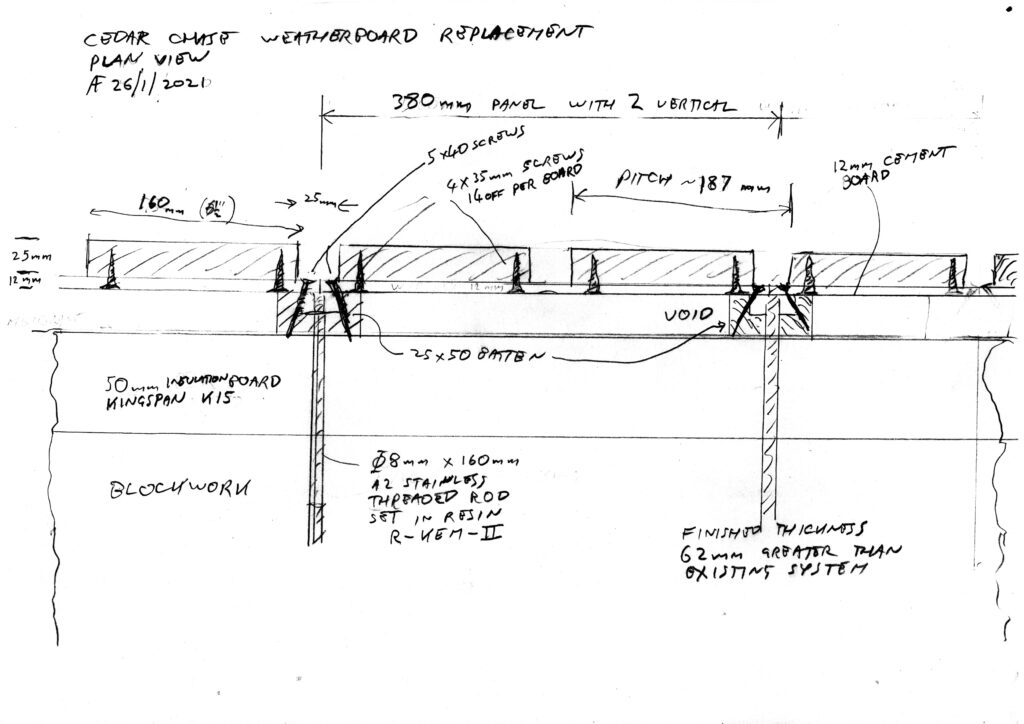 CEDAR CHASE WEATHERBOARD REPLACEMENT
PLAN VIEW
AF 26/1/2021
380mm PANEL WITH 2 VERTICAL
5x40 SCREWS
4 x 35mm SCREWS
14 OFF PER BOARD
PITCH ~187 mm
12mm CEMENT
BOARD
160mm
25mm
25mm
12mm
12mm
VOID
25x50 BATTEN
50mm INSULATION BOARD
KINGSPAN K15
BLOCKWORK
Φ8mm x 160mm
A2 STAINLESS
THREADED ROD
SET IN RESIN
R-KEM-II
FINISHED THICKNESS
62mm GREATER THAN
EXISTING SYSTEM